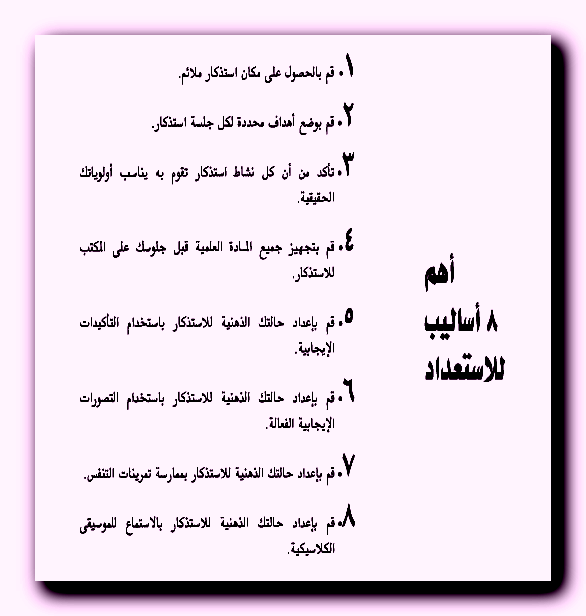 أهم
٨ أساليب
للاستعداد
١. قم بالحصول على مكان استذكار ملائم.
٢. قم بوضع أهداف محددة لكل جلسة استذكار.
٣. تأكد من أن كل نشاط استذكار تقوم به يناسب أولوياتك
الحقيقية.
٤. قم بتجهيز جميع المادة العلمية قبل جلوسك على المكتب
للاستذكار.
٥. قم بإعداد حالتك الذهنية للاستذكار باستخدام التأكيدات
الإيجابية.
٦. قم بإعداد حالتك الذهنية للاستذكار باستخدام التصورات
الإيجابية الفعالة.
٧. قم بإعداد حالتك الذهنية للاستذكار بممارسة تمرينات التنفس.
٨. قم بإعداد حالتك الذهنية للاستذكار بالاستماع للموسيقى
الكلاسيكية.